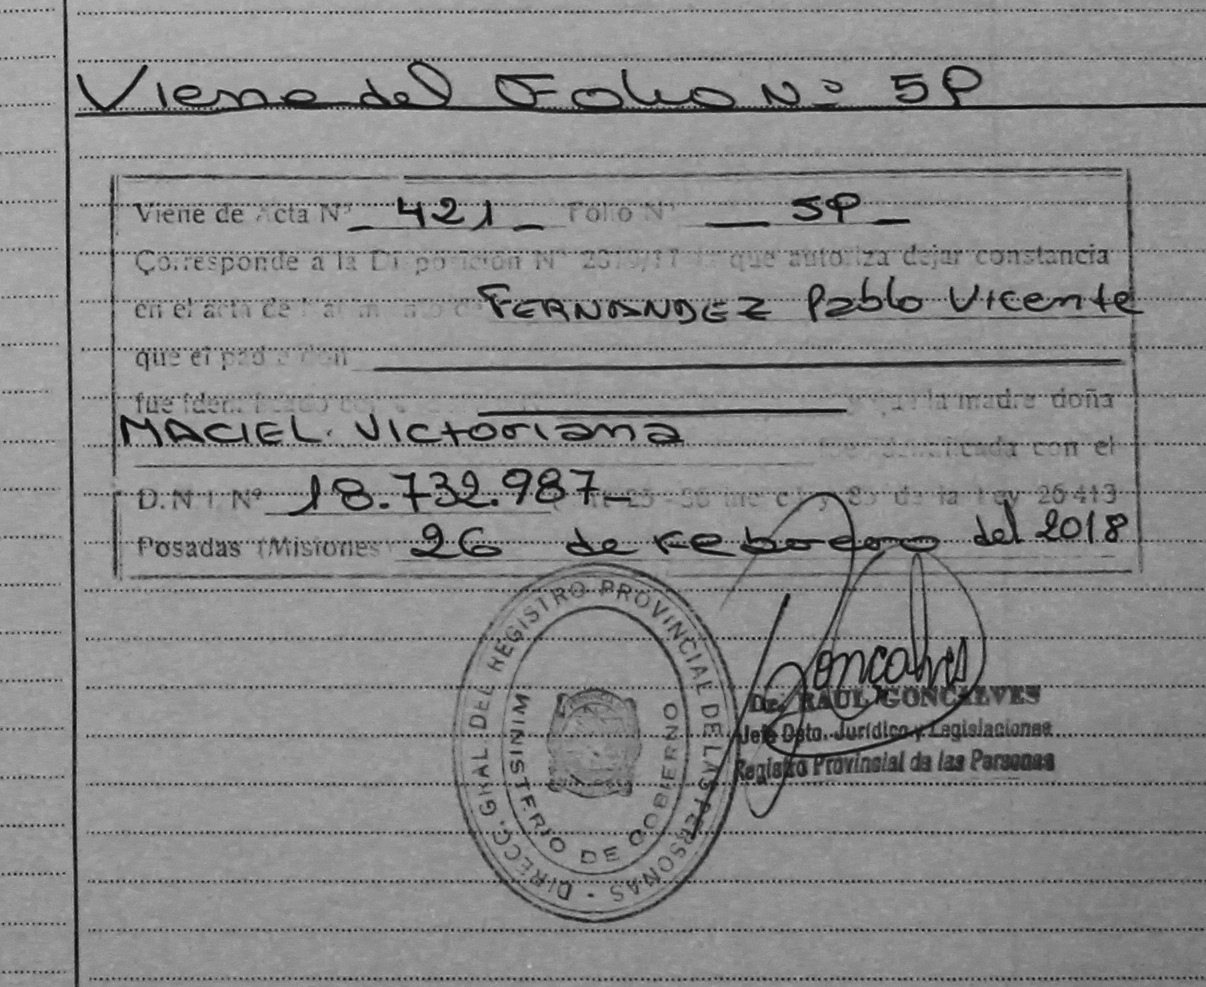 Viene del Folio Nº 59
Viene de Acta Nº 421 Folio Nº 59
Corresponde a la Disposición Nº 2319/17 que autoriza dejar constancia
en el acta de FERNANDEZ Pablo Vicente
que el padre don
fue la madre doña
MACIEL Victoriana
identificada con el
D.N.I. Nº 18.732.987 de la Ley 26413
Posadas (Misiones 26 de Febrero del 2018
DIRECC. GRAL. DEL REGISTRO PROVINCIAL DE LAS PERSONAS
MINISTERIO DE GOBIERNO
Goncalves
Dr. RAUL GONCALVES
Jefe Dpto. Jurídico y Legislaciones
Registro Provincial de las Personas